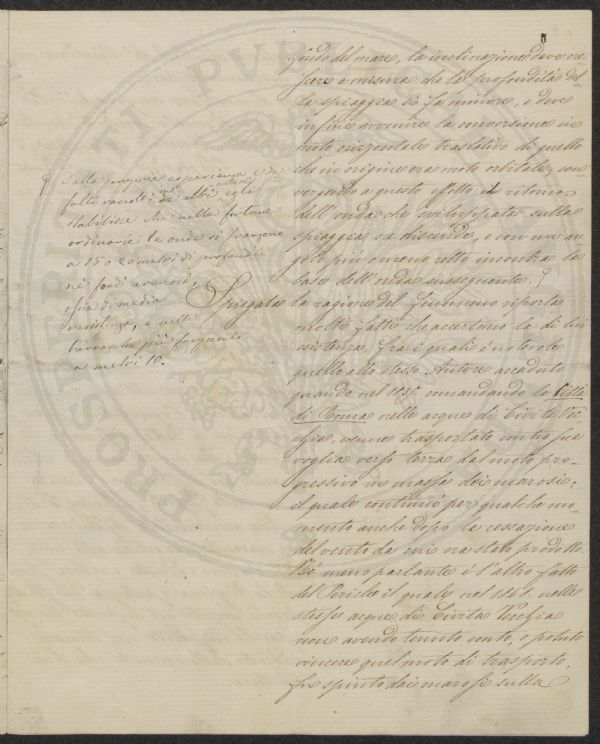 8
fondo del mare, la inclinazione deve cre
scere a misura che la profondità del
la spiaggia si fa minore, e deve
infine avvenire la conversione in
moto orizzontale traslativo di quello
che in origine era moto orbitale, con
vergendo a questo effetto il ritorno
dell'onda che sviluppata sulla
spiaggia ne discende, e con un an
golo più o meno retto incontra la
base dell'onda susseguente. φ
Spiegata la ragione del fenomeno riporta
molti fatti che accertano la di lui
esistenza. Fra i quali è notevole
quello allo stesso Autore accaduto
quando nel comandando la Città
di Roma nelle acque di Civitavec
chia, venne trasportato contro sua
voglia verso terra dal moto pro-
gressivo in massa dei marosi;
il quale continuò per qualche mo-
mento anche dopo la cessazione
del vento da cui era stato prodotto.
Nè meno parlante è l'altro fatto
del Pericle il quale nel nelle
stesse acque di Civita Vecchia
non avendo tenuto conto, o potuto
vincere quel moto di trasporto,
fu spinto dai marosi sulla
φ Dalla propria esperienza e da
fatti raccolti da altri autori egli
stabilisce che nelle fortune
ordinarie le onde si frangono
a 15 o 20 metri di profondità
nei fondi arenosi,
ossia di media
resistenza, e nelle
burrasche più frequenti
a metri 10.
PROSPERITATI PVBLICAE